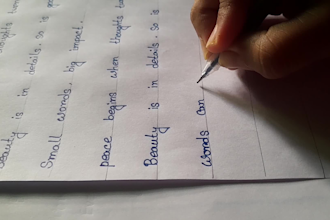 thoughts
Beauty is in details, so is
Small words, big impact.
peace begins when thoughts
Beauty is in details, so
Words can